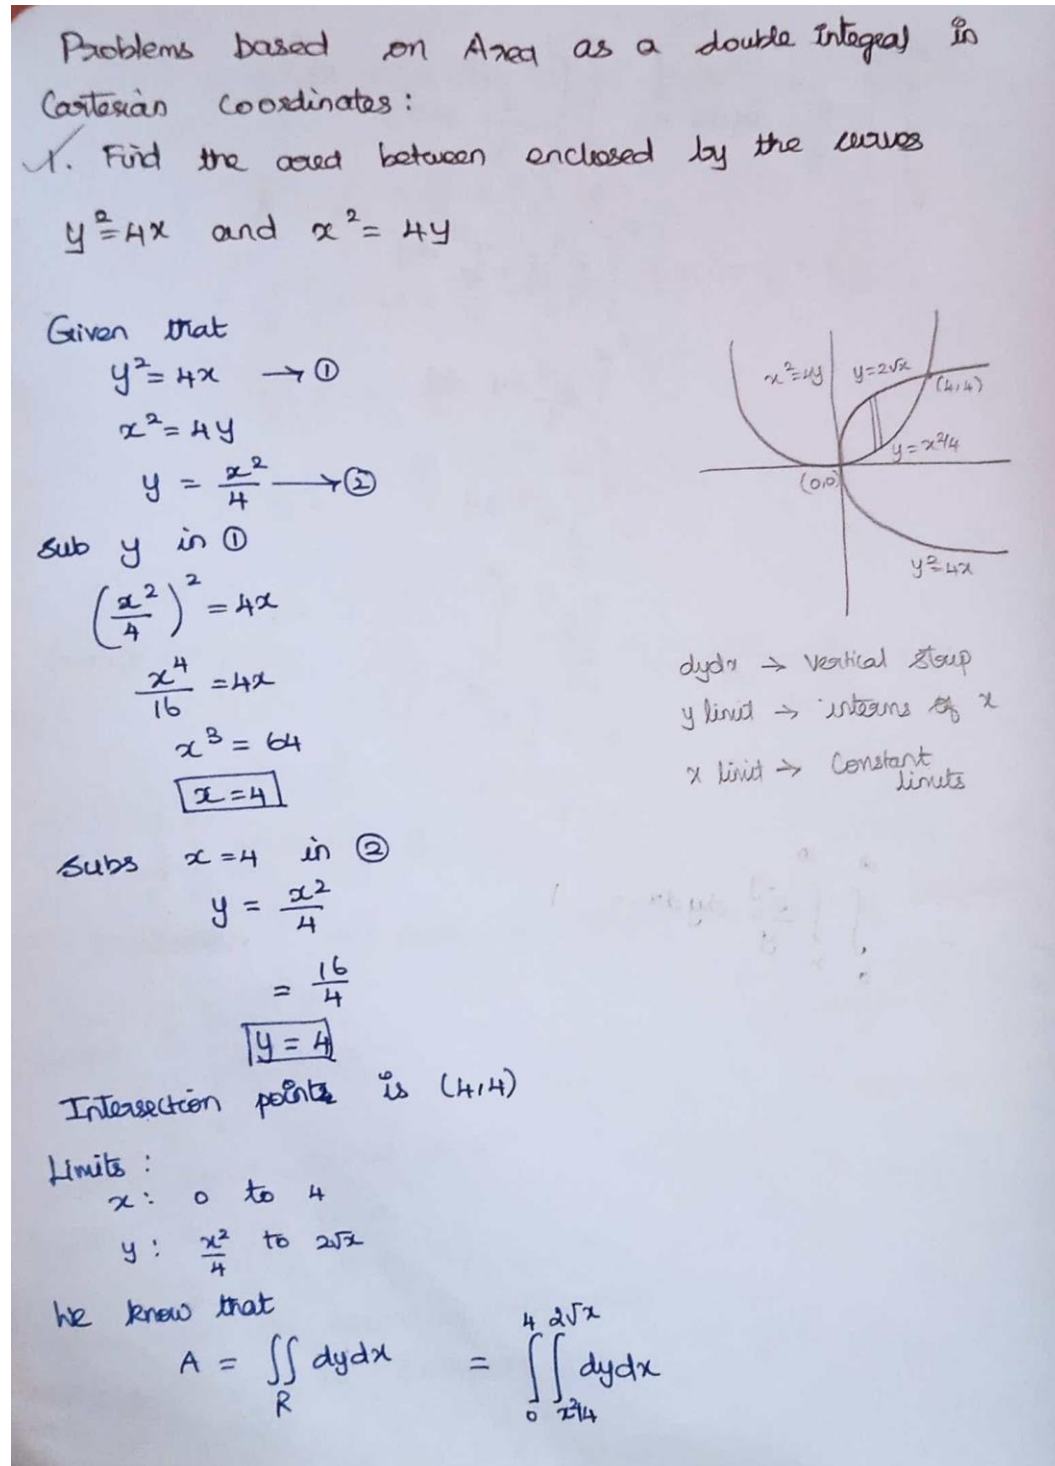 Problems based on Area as a double integral in
Cartesian coordinates:
1. Find the area between enclosed by the curves
y² = 4x and x² = 4y
Given that
y² = 4x → ①
x² = 4y
y = x²/4 → ②
Sub y in ①
(x²/4)² = 4x
x⁴/16 = 4x
x³ = 64
x = 4
Subs x = 4 in ②
y = x²/4
= 16/4
y = 4
Intersection points is (4,4)
Limits:
x: 0 to 4
y: x²/4 to 2√x
We know that
A = ∬_R dydx = ∫₀⁴ ∫_{x²/4}^{2√x} dydx
x² = 4y
y = 2√x
(4,4)
y = x²/4
(0,0)
y² = 4x
dydx → Vertical strip
y limit → interms of x
x limit → Constant
limits